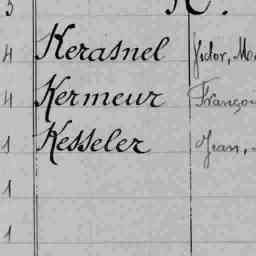 5 K.
4 Kerasnel Isidor, Ma
4 Kermeur Françoi
1 Kesseler Jean,
1
1